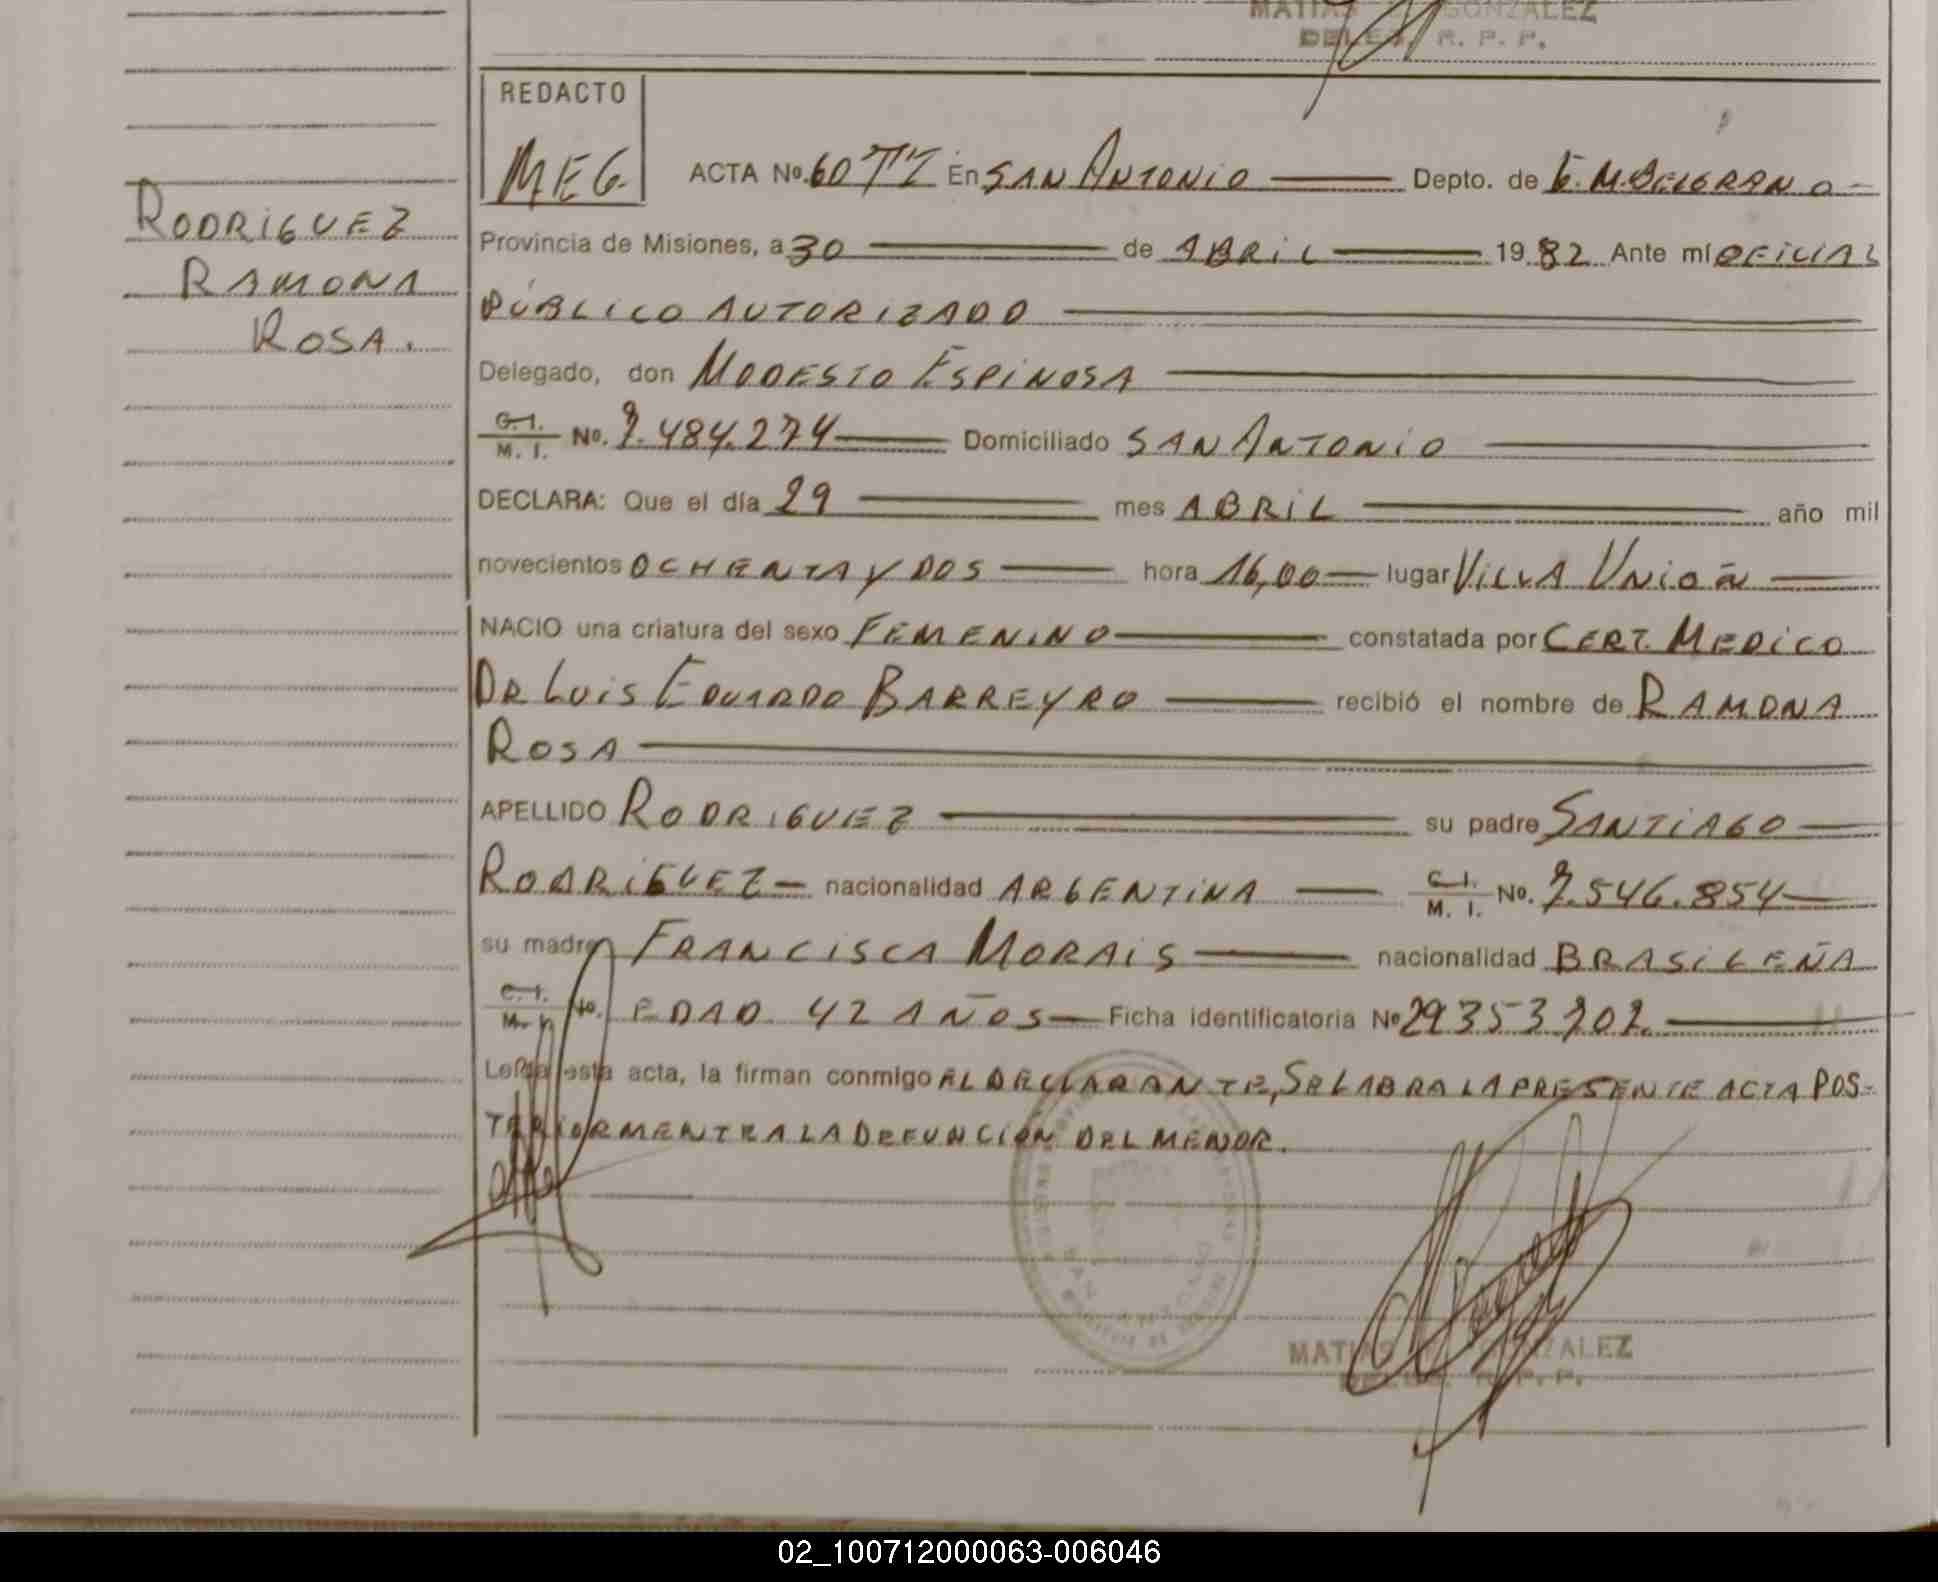 MATIAS GONZALEZ
DELEG. R. P. P.
REDACTO
MEG.
ACTA Nº. 60 TI En SAN ANTONIO Depto. de G. M. BELGRANO
RODRIGUEZ
RAMONA
ROSA.
Provincia de Misiones, a 30 de ABRIL 1982 Ante mí OFICIAL
PÚBLICO AUTORIZADO
Delegado, don MODESTO ESPINOSA
C. I. / M. I. Nº. 7.484.274 Domiciliado SAN ANTONIO
DECLARA: Que el día 29 mes ABRIL año mil
novecientos OCHENTA Y DOS hora 16,00 lugar VILLA UNIÓN
NACIO una criatura del sexo FEMENINO constatada por CERT. MEDICO
DR LUIS EDUARDO BARREYRO recibió el nombre de RAMONA
ROSA
APELLIDO RODRIGUEZ su padre SANTIAGO
RODRIGUEZ nacionalidad ARGENTINA C. I. / M. I. Nº. 7.546.854
su madre FRANCISCA MORAIS nacionalidad BRASILEÑA
C. I. / M. I. No. EDAD 42 AÑOS Ficha identificatoria Nº 29353202
Leída esta acta, la firman conmigo EL DECLARANTE, SE LABRA LA PRESENTE ACTA POS-
TERIORMENTE A LA DEFUNCIÓN DEL MENOR.
MATIAS GONZALEZ
DELEG. R. P. P.
02_100712000063-006046